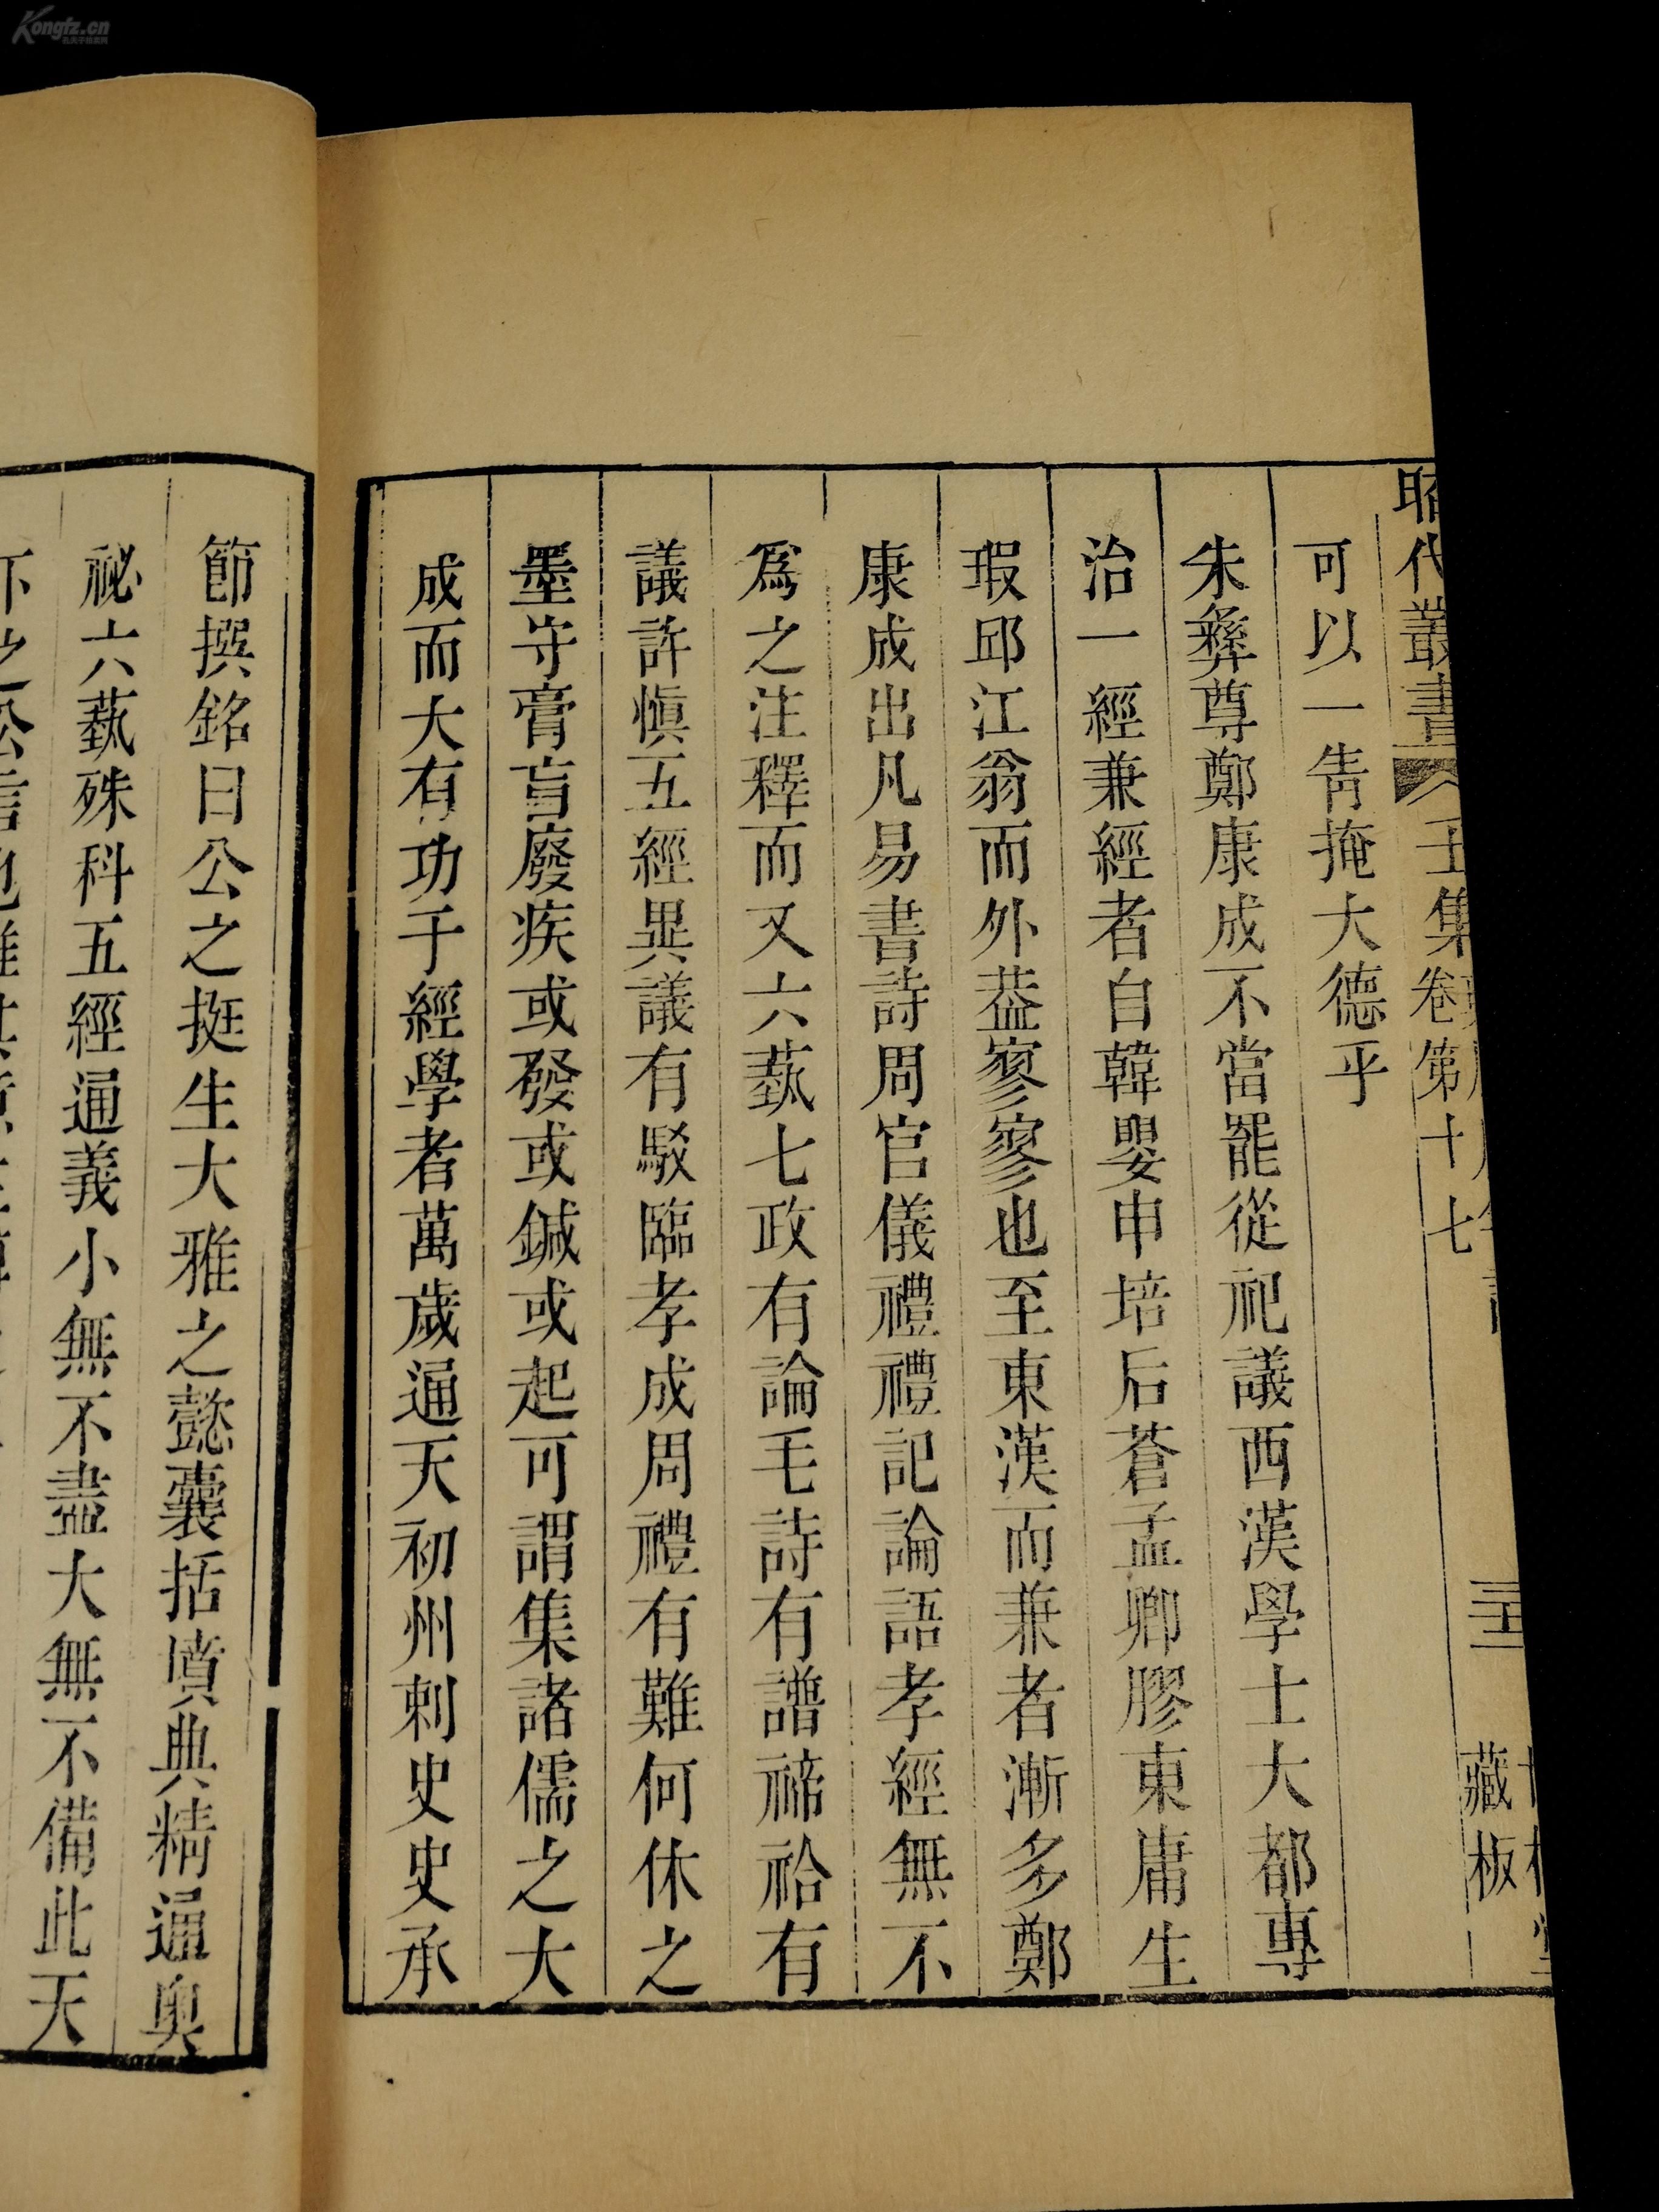 Kongfz.cn
昭代叢書
壬集卷第十七
藏板
可以一眚掩大德乎
朱彝尊鄭康成不當罷從祀議西漢學士大都專
治一經兼經者自韓嬰申培后蒼孟卿膠東庸生
瑕邱江翁而外葢寥寥也至東漢而兼者漸多鄭
康成出凡易書詩周官儀禮禮記論語孝經無不
爲之注釋而又六蓺七政有論毛詩有譜禘祫有
議許愼五經異議有駁臨孝成周禮有難何休之
墨守膏肓廢疾或發或鍼或起可謂集諸儒之大
成而大有功于經學者萬歲通天初州刺史史承
節撰銘曰公之挺生大雅之懿囊括墳典精通奥
祕六蓺殊科五經通義小無不盡大無不備此天